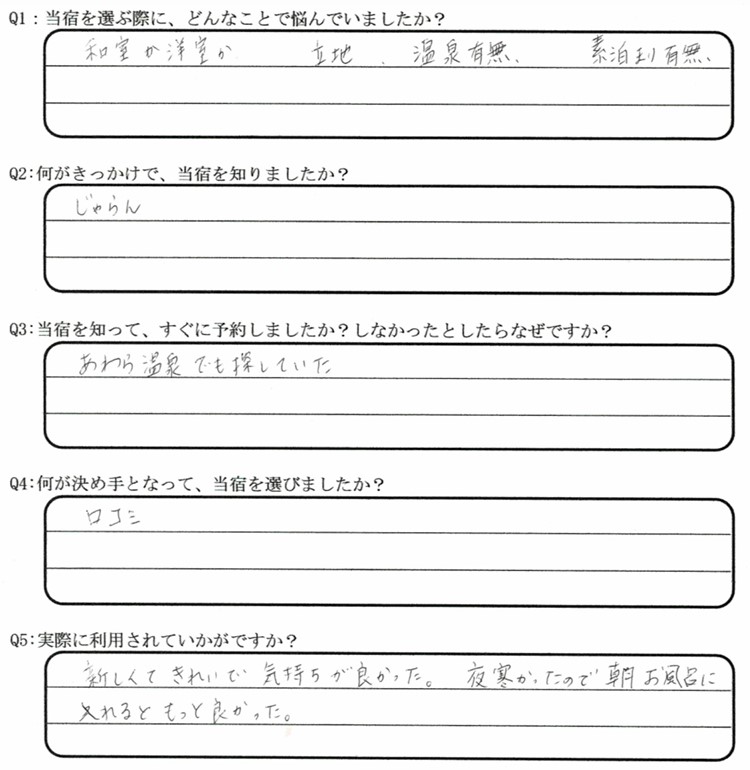 Q1：当宿を選ぶ際に、どんなことで悩んでいましたか？
和室か洋室か　立地、温泉有無、素泊まり有無、
Q2：何がきっかけで、当宿を知りましたか？
じゃらん
Q3：当宿を知って、すぐに予約しましたか？しなかったとしたらなぜですか？
あわら温泉でも探していた
Q4：何が決め手となって、当宿を選びましたか？
口コミ
Q5：実際に利用されていかがですか？
新しくてきれいで気持ちが良かった。夜寒かったので朝お風呂に
入れるともっと良かった。